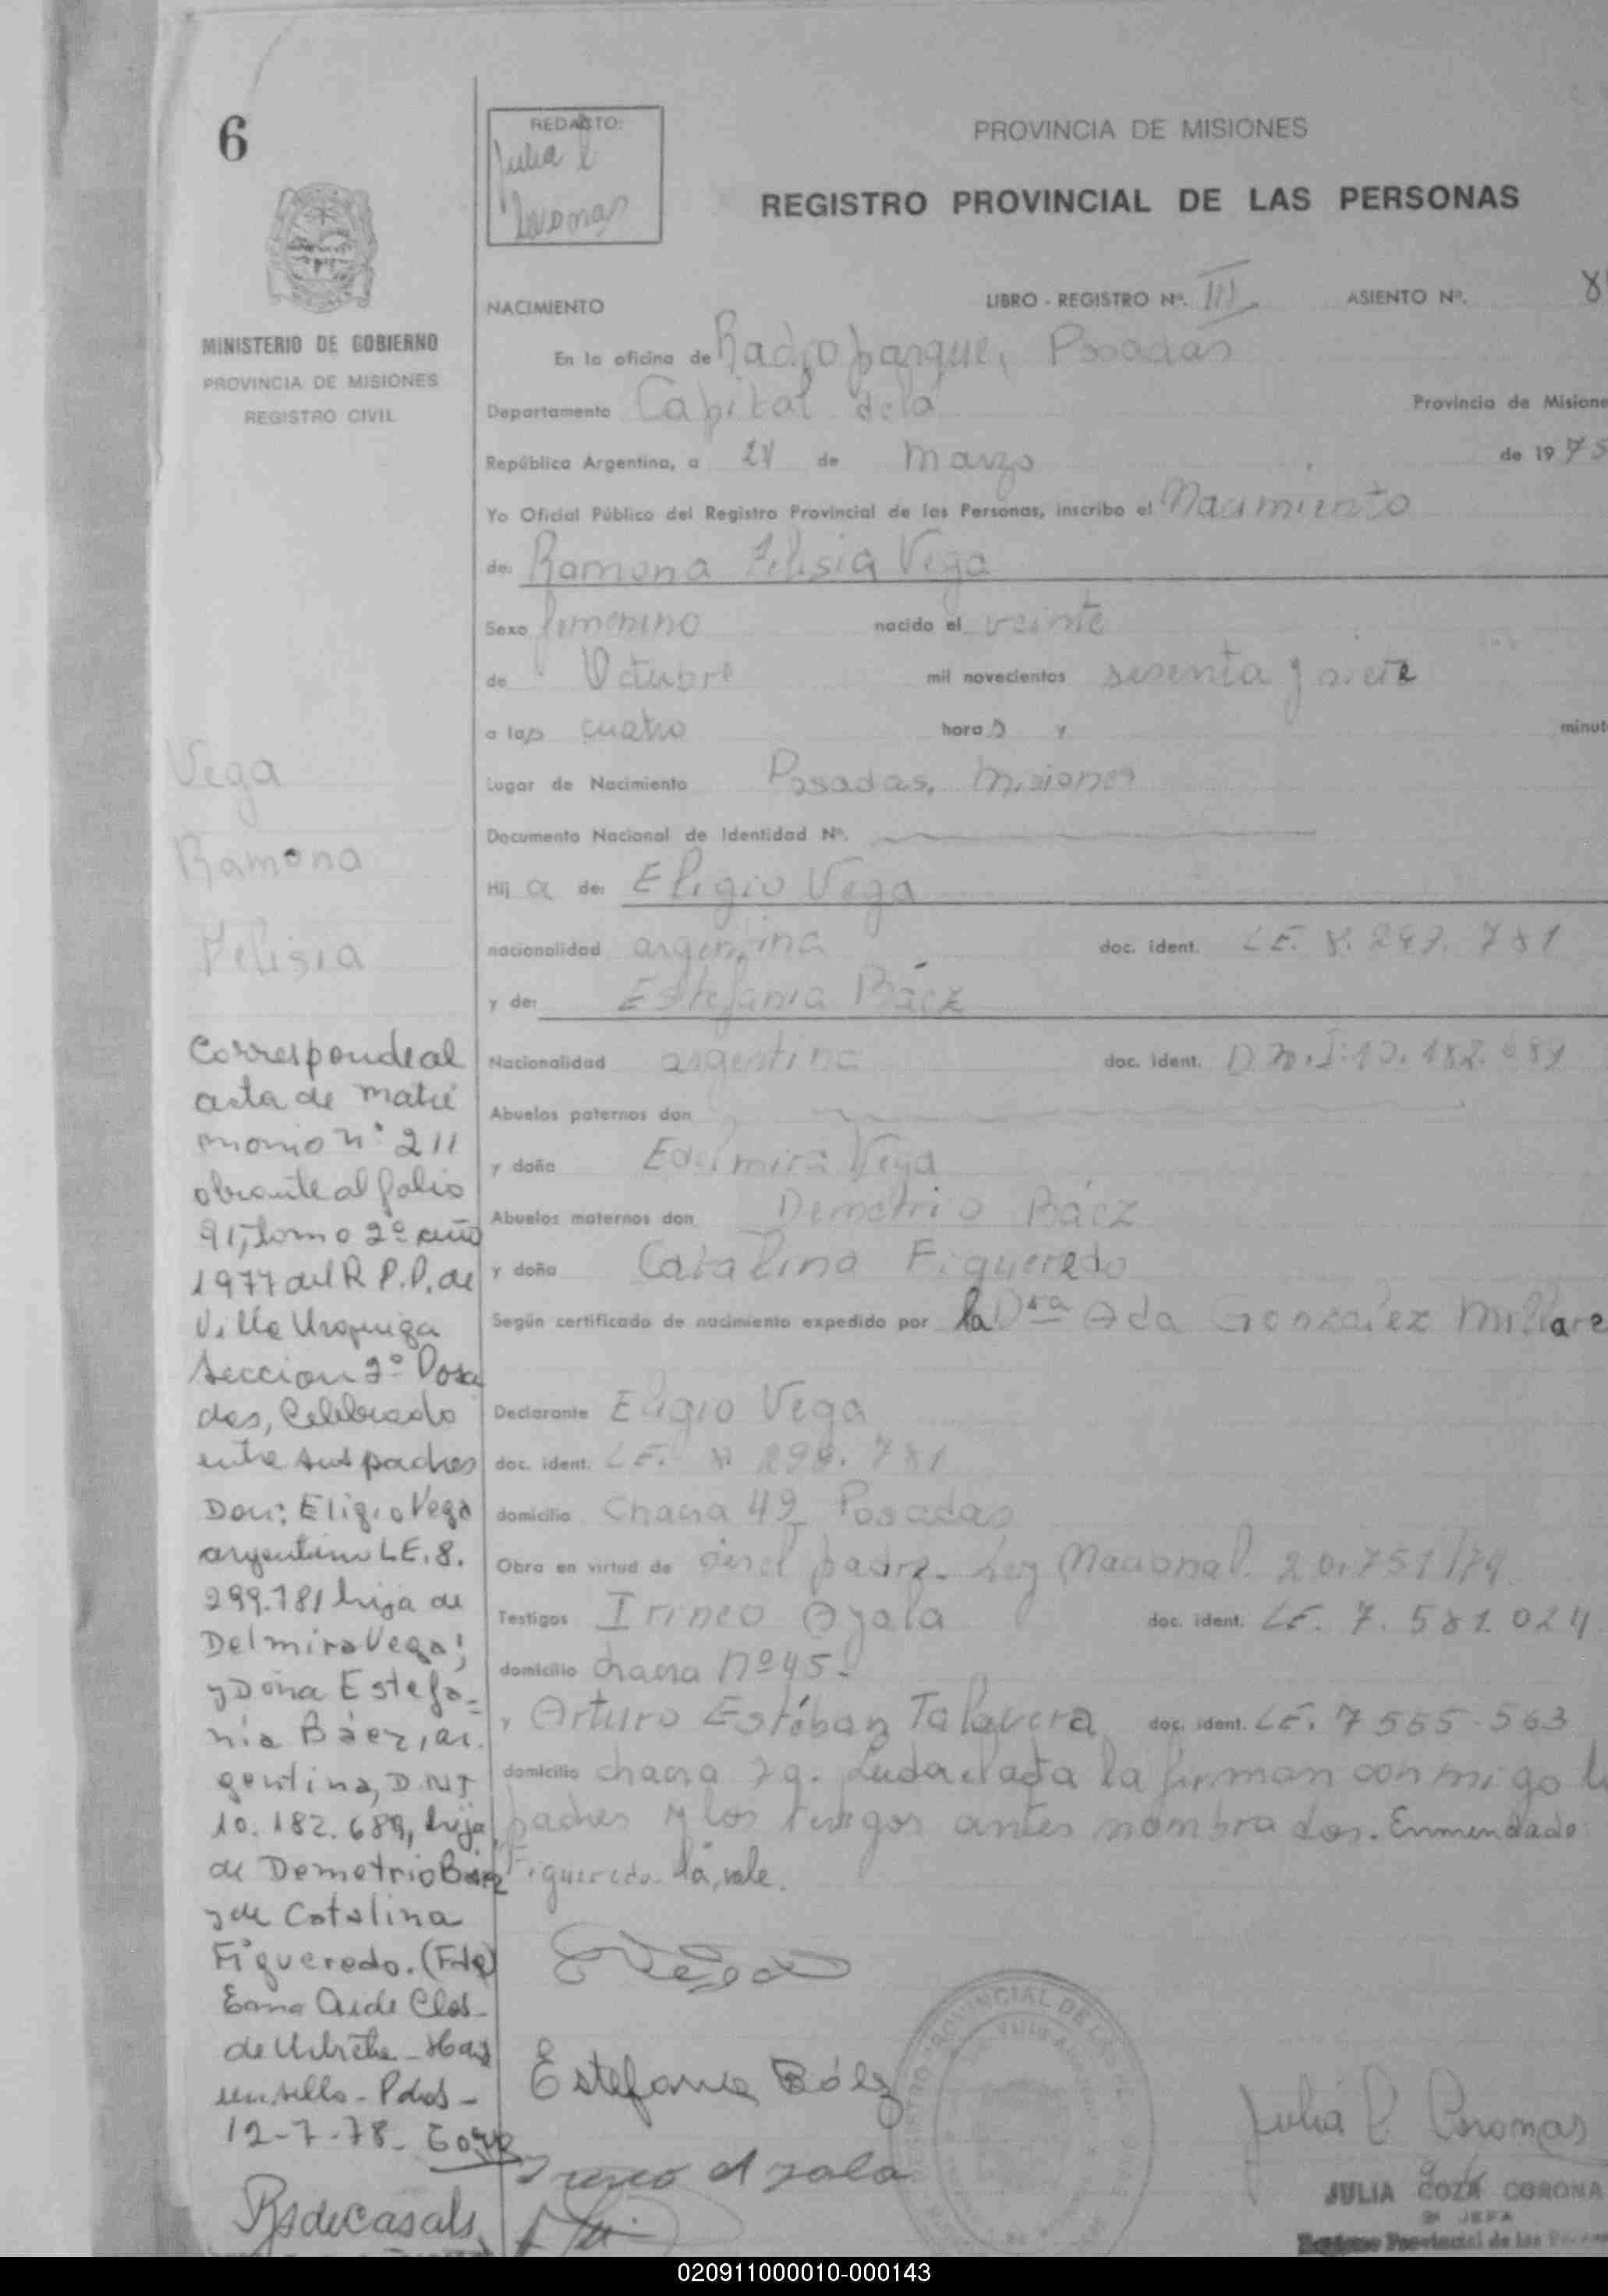 6
REDACTO:
Julia C
Coromas
PROVINCIA DE MISIONES
REGISTRO PROVINCIAL DE LAS PERSONAS
MINISTERIO DE GOBIERNO
PROVINCIA DE MISIONES
REGISTRO CIVIL
NACIMIENTO
LIBRO - REGISTRO Nº. III
ASIENTO Nº.
En la oficina de Radioparque, Posadas
Departamento Capital dela Provincia de Misione
República Argentina, a 24 de Marzo de 1975
Yo Oficial Público del Registro Provincial de las Personas, inscribo el Nacimiento
de: Ramona Felisia Vega
Sexo femenino nacido el veinte
de Octubre mil novecientos sesenta y siete
a las cuatro horas y minut
Lugar de Nacimiento Posadas, Misiones
Documento Nacional de Identidad Nº.
Hij a de: Eligio Vega
nacionalidad argentina doc. ident. LE. 8. 299. 781
y de: Estefania Báez
Nacionalidad argentina doc. ident. D.N.I: 10. 182. 689
Abuelos paternos don
y doña Edelmira Vega
Abuelos maternos don Demetrio Báez
y doña Catalina Figueredo
Según certificado de nacimiento expedido por la Dra Ada Gonzalez Millare
Declarante Eligio Vega
doc. ident. LE. 8 299. 781
domicilio Chacra 49 Posadas
Obra en virtud de ser el padre. Ley Nacional. 20.751/74.
Testigos Irineo Ayala doc. ident. LE. 7. 581. 024
domicilio chacra Nº 45.
y Arturo Estéban Talavera doc. ident. LE. 7 555. 563
domicilio chacra 79. Leida el acta la firman con migo l
padres y los testigos antes nombrados. Enmendado:
Figueredo. la, vale.
Vega
Ramona
Felisia
Corresponde al
acta de matri
monio nº 211
obrante al folio
91, tomo 2º año
1977 del R.P.P. de
Villa Urquiza
Seccion 2º Posa
das, Celebrado
entre sus padres
Don: Eligio Vega
argentino LE. 8.
299.781 hijo de
Delmira Vega;
y Doña Estefa-
nia Báez, ar.
gentina, D.N.I
10. 182. 689, hija
de Demetrio Báez
y de Catalina
Figueredo. (Fdo)
Ema Aide Clos
de Uibriche - Hay
un sello - Pdas -
12-7-78 -
Rsdecasals
Vega
Estefania Báez
Irineo Ayala
Julia C Coromas
JULIA COZA CORONA
JEFA
Registro Provincial de las Person
020911000010-000143